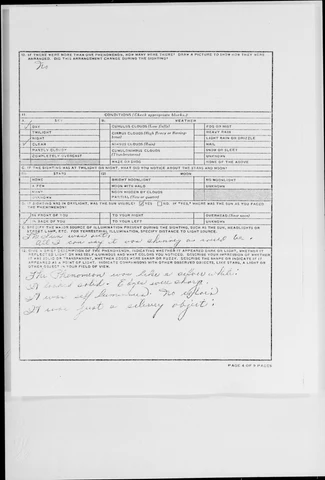 10. IF THERE WERE MORE THAN ONE PHENOMENON, HOW MANY WERE THERE? DRAW A PICTURE TO SHOW HOW THEY WERE
ARRANGED. DID THIS ARRANGEMENT CHANGE DURING THE SIGHTING?
No
CONDITIONS (Check appropriate blocks.)
SKY
WEATHER
DAY
CUMULUS CLOUDS (Low fluffy)
FOG OR MIST
TWILIGHT
CIRRUS CLOUDS (High fleecy or Herring-bone)
HEAVY RAIN
NIGHT
LIGHT RAIN OR DRIZZLE
CLEAR
NIMBUS CLOUDS (Rain)
HAIL
PARTLY CLOUDY
CUMULONIMBUS CLOUDS (Thunderstorms)
SNOW OR SLEET
COMPLETELY OVERCAST
UNKNOWN
HAZE OR SMOG
NONE OF THE ABOVE
IF THE SIGHTING WAS AT TWILIGHT OR NIGHT, WHAT DID YOU NOTICE ABOUT THE STARS AND MOON?
STARS
MOON
NONE
BRIGHT MOONLIGHT
NO MOONLIGHT
A FEW
MOON WITH HALO
UNKNOWN
MANY
MOON HIDDEN BY CLOUDS
UNKNOWN
PARTIAL (New or quarter)
IF SIGHTING WAS IN DAYLIGHT, WAS THE SUN VISIBLE? YES NO IF "YES," WHERE WAS THE SUN AS YOU FACED
THE PHENOMENON?
IN FRONT OF YOU
TO YOUR RIGHT
OVERHEAD (Near noon)
IN BACK OF YOU
TO YOUR LEFT
UNKNOWN
SPECIFY THE MAJOR SOURCE OF ILLUMINATION PRESENT DURING THE SIGHTING, SUCH AS THE SUN, HEADLIGHTS OR
STREET LAMP, ETC. FOR TERRESTRIAL ILLUMINATION, SPECIFY DISTANCE TO LIGHT SOURCE.
The sun was out.
GIVE A BRIEF DESCRIPTION OF THE PHENOMENON, INDICATING WHETHER IT APPEARED DARK OR LIGHT, WHETHER IT
REFLECTED LIGHT OR WAS SELF-LUMINOUS AND WHAT COLORS YOU NOTICED. DESCRIBE YOUR IMPRESSION OF WHETHER
IT WAS SOLID OR TRANSPARENT, WHETHER EDGES WERE SHARP OR FUZZY. DESCRIBE THE SHAPE OR INDICATE IF IT
APPEARED AS A POINT OF LIGHT. INDICATE COMPARISONS WITH OTHER OBSERVED OBJECTS, LIKE STARS, A LIGHT OR
OTHER OBJECT IN YOUR FIELD OF VIEW.
The Phenomenon was like a
It looked solid. Edges were sharp.
It was self luminous. No
It was just a silvery object.
PAGE 4 OF 5 PAGES